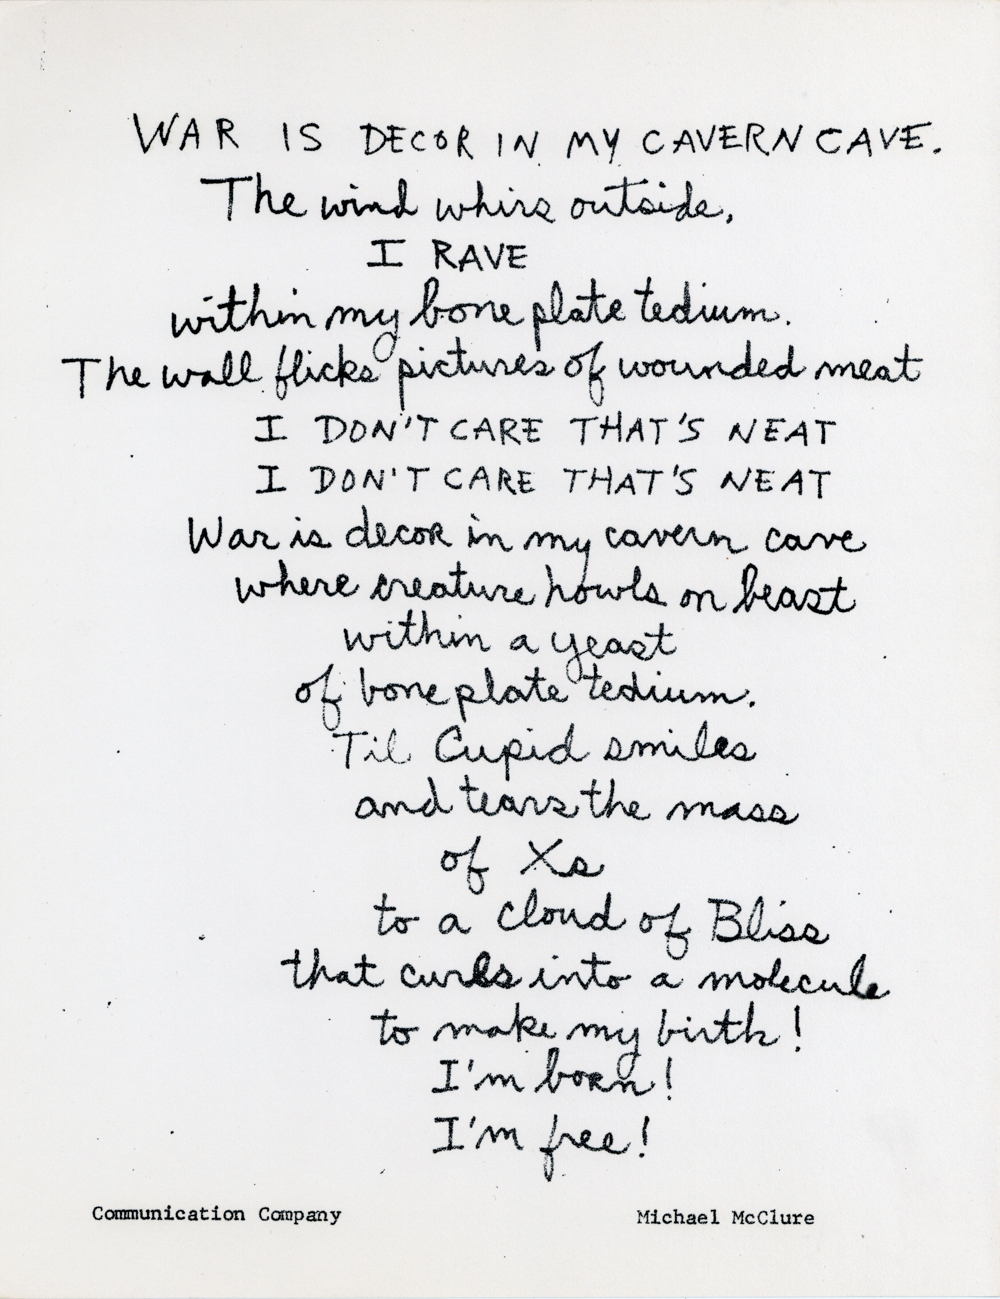 WAR IS DECOR IN MY CAVERN CAVE.
The wind whirs outside,
I RAVE
within my bone plate tedium.
The wall flicks pictures of wounded meat
I DON'T CARE THAT'S NEAT
I DON'T CARE THAT'S NEAT
War is decor in my cavern cave
where creature howls on beast
within a yeast
of bone plate tedium.
Til Cupid smiles
and tears the mass
of Xs
to a cloud of Bliss
that curls into a molecule
to make my birth!
I'm born!
I'm free!
Communication Company Michael McClure